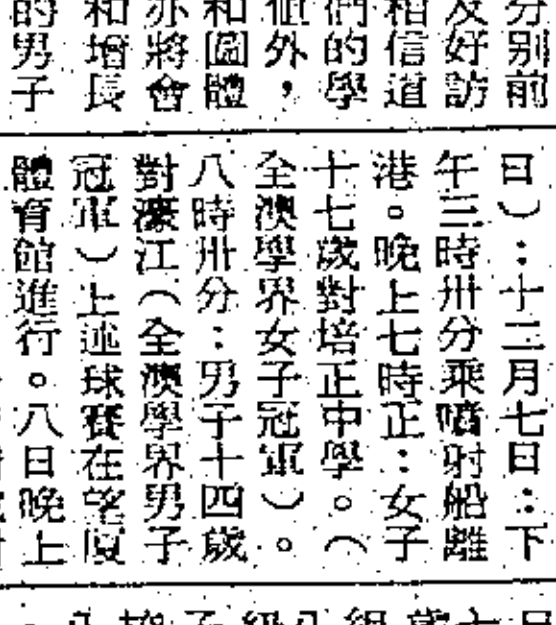 分別前
及好訪
相信道
們的學
值外，
和團體
亦將會
和增長
的男子
日）：十二月七日：下
午三時卅分乘噴射船離
港。晚上七時正：女子
十七歲對培正中學。（
全澳學界女子冠軍）。
八時卅分：男子十四歲
對濠江（全澳學界男子
冠軍）上述球賽在望廈
體育館進行。八日晚上